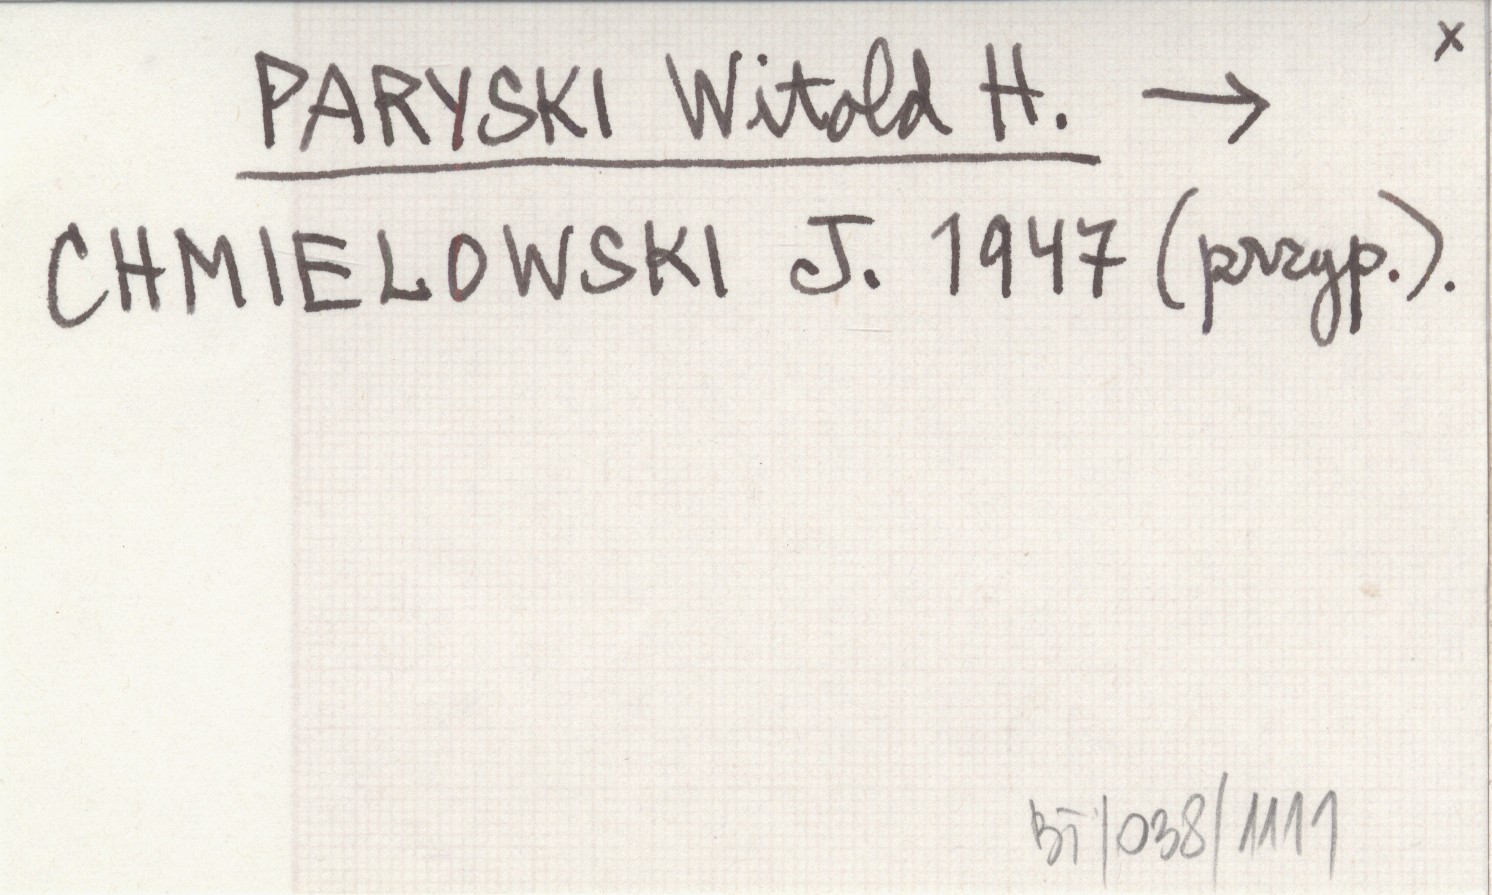 x
PARYSKI Witold H. →
CHMIELOWSKI J. 1947 (przyp.).
BT/038/1111